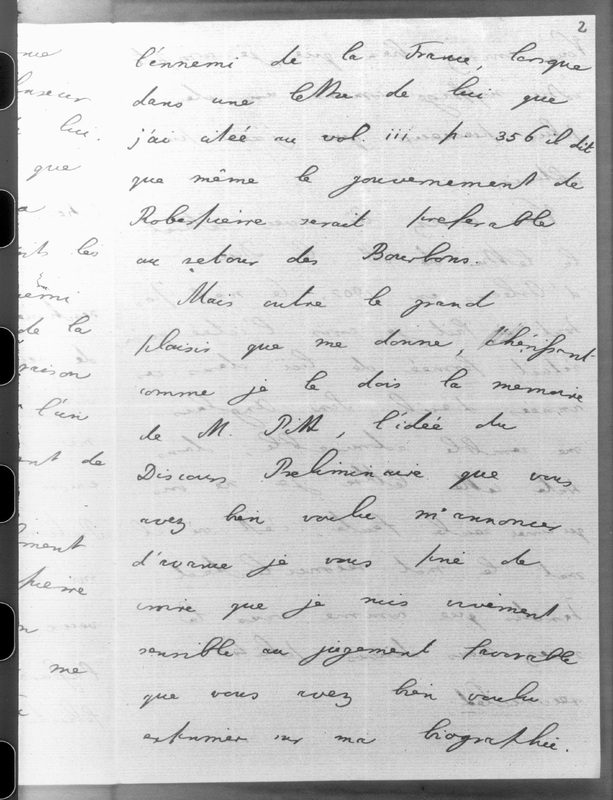 2
l'ennemi de la France, lorsque
dans une lettre de lui que
j'ai citéé au vol. iii p 356 il dit
que même le gouvernement de
Roberpierre serait preferable
au retour des Bourbons.
Mais outre le grand
plaisir que me donne, cherissant
comme je le dois la memoire
de M. Pitt, l'idée du
Discours Preliminaire que vous
avez bien voulu m'annoncer
d'avance je vous prie de
croire que je suis vivement
sensible au jugement favorable
que vous avez bien voulu
exprimer sur ma biographie.
que
lui.
que
a
les
de la
l'un
de
me